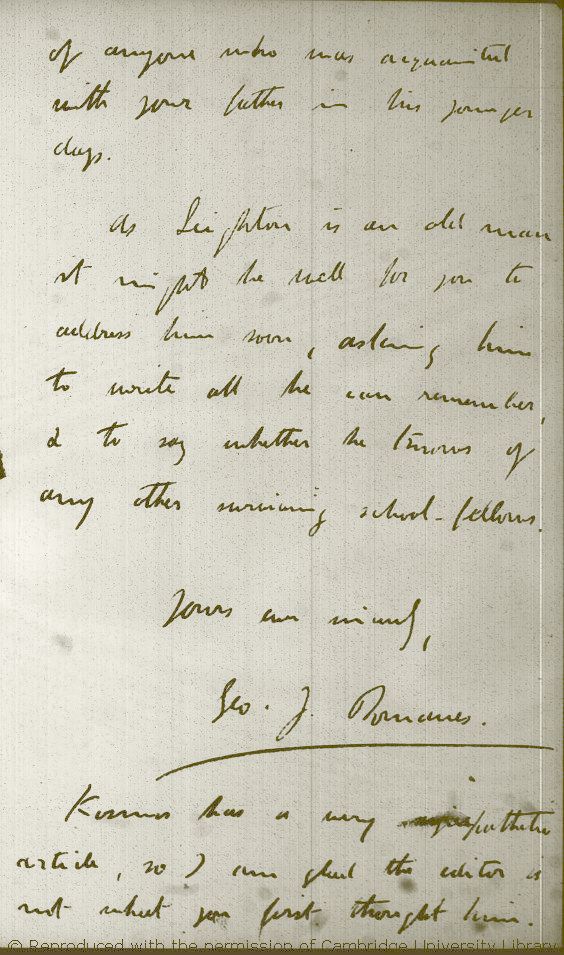 of anyone who was acquainted
with your father in his younger
days.
As Leighton is an old man
it might be well for you to
address him soon, asking him
to write all he can remember,
& to say whether he knows of
any other surviving school-fellows.
Yours ever sincerely,
Geo. J. Romanes.
Kosmos has a very sympathetic
article, so I am glad the editor is
not what you first thought him.
© Reproduced with the permission of Cambridge University Library